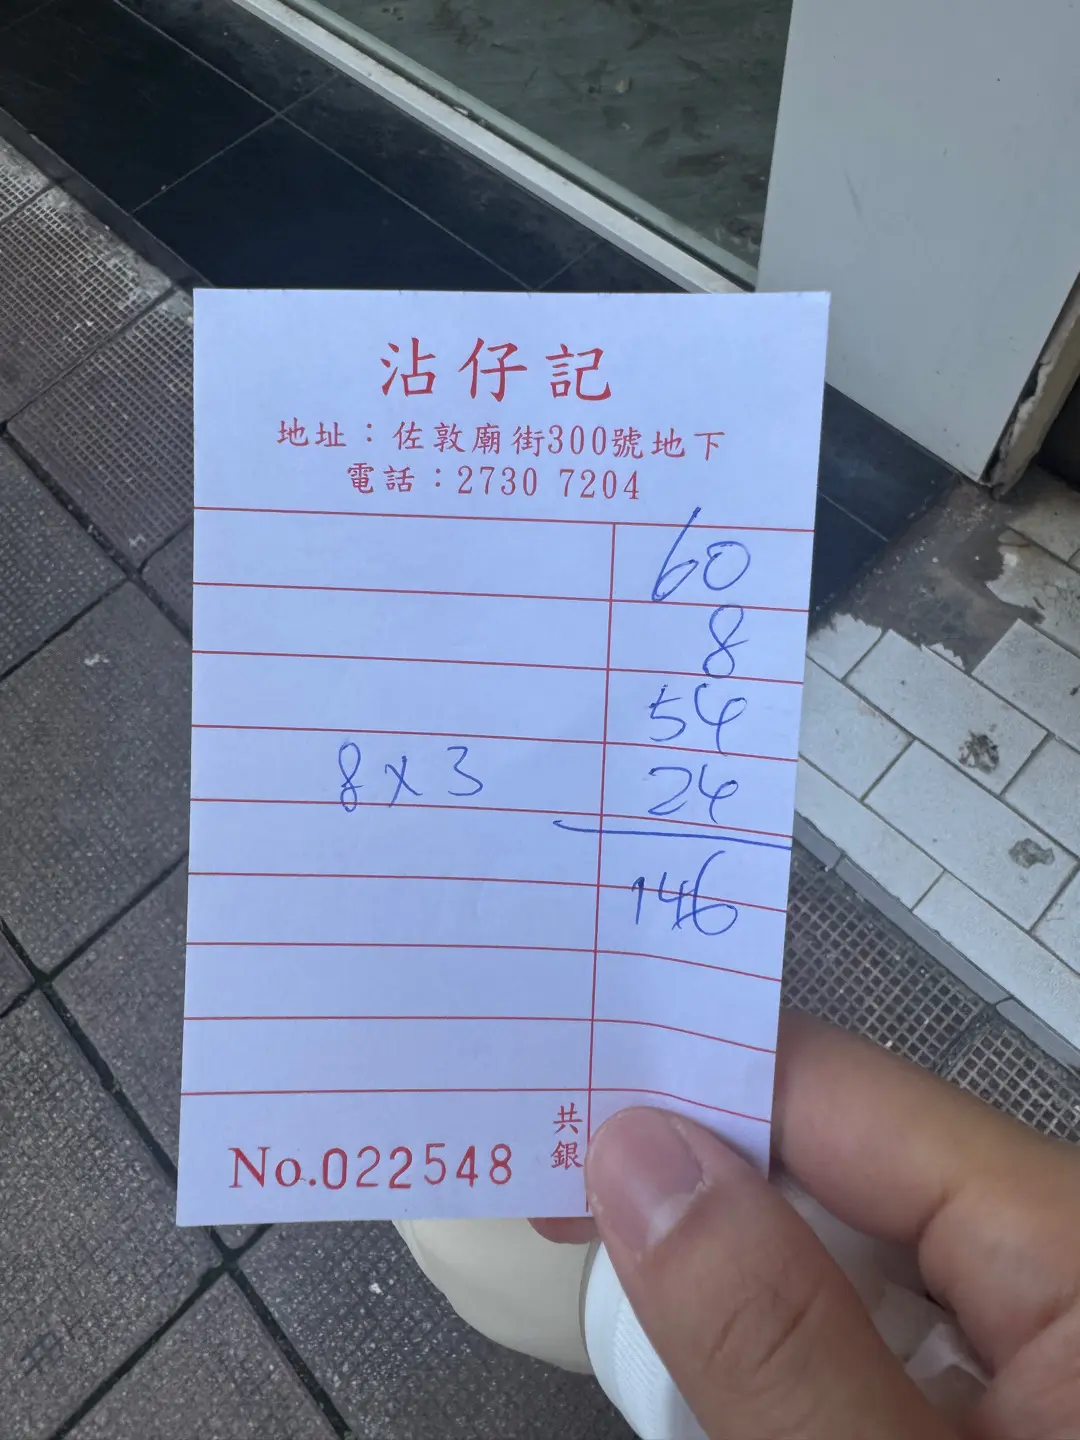 沾仔記
地址：佐敦廟街300號地下
電話：2730 7204
60
8
54
8 x 3 24
146
共銀
No.022548